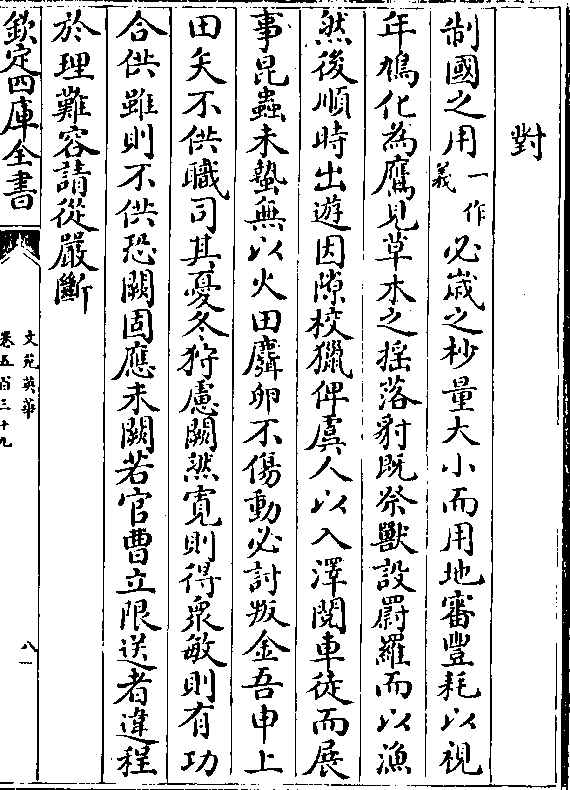 對
制國之用一作義必歳之杪量大小而用地審豐耗以視
年鳩化為鷹見草木之揺落豺既祭獸設罻羅而以漁
然後順時出遊因隙校獵俾虞人以入澤閱車徒而展
事昆蟲未蟄無以火田麛卵不傷動必討叛金吾申上
田矢不供職司其憂冬狩慮闕然寛則得衆敏則有功
合供雖則不供恐闕固應未闕若官曹立限送者違程
於理難容請從嚴斷
欽定四庫全書
文苑英華
卷五百三十九
八